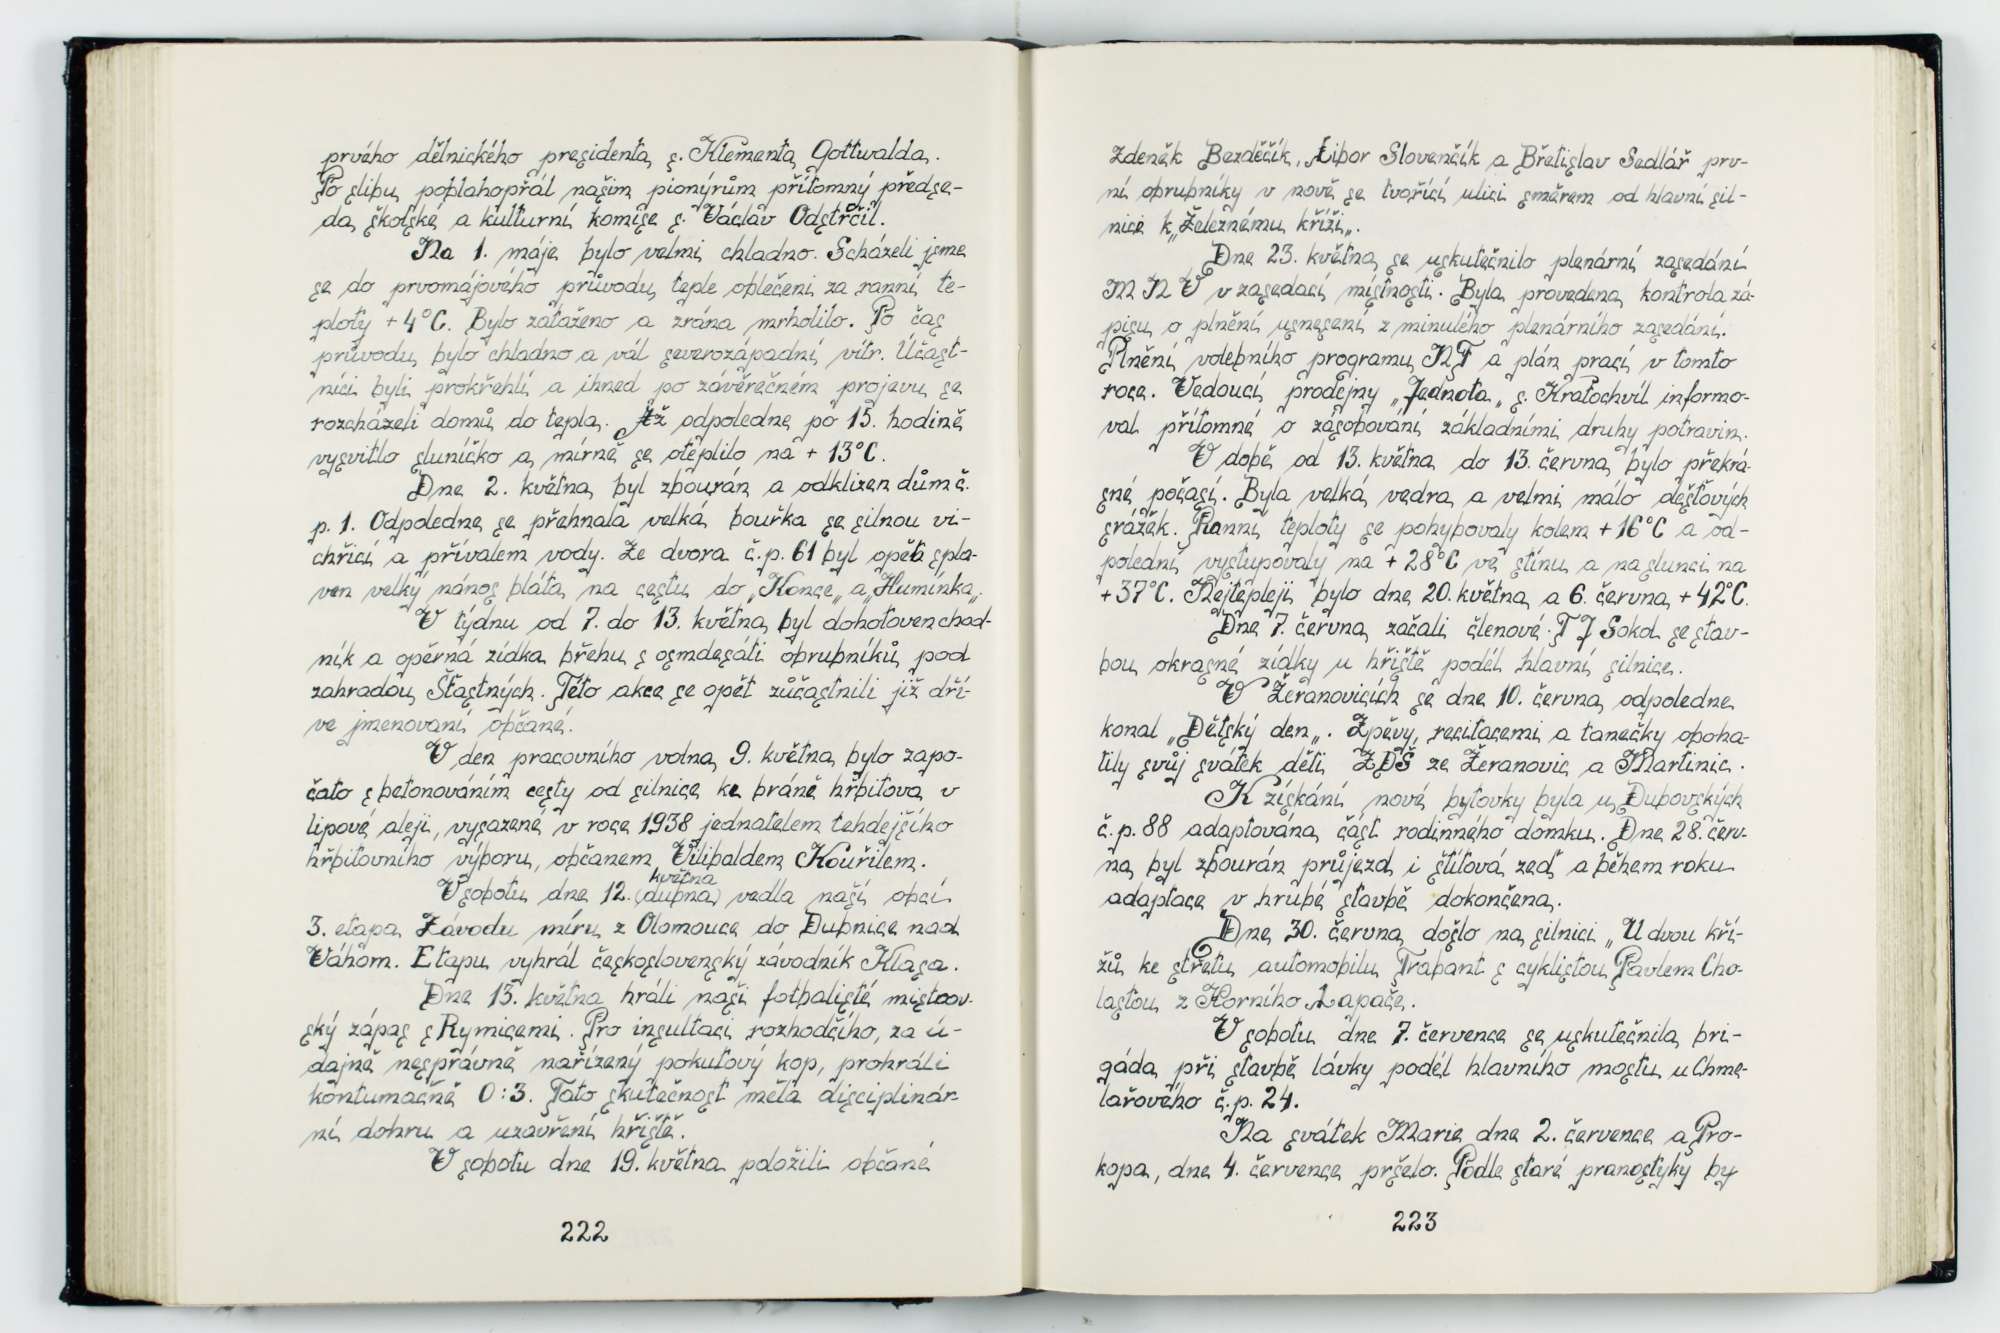 prvého dělnického presidenta s. Klementa Gottwalda.
Po slibu poblahopřál našim pionýrům přítomný předse-
da školské a kulturní komise s. Václav Odstrčil.
Na 1. máje bylo velmi chladno. Scházeli jsme
se do prvomájového průvodu teple oblečeni za ranní te-
ploty +4°C. Bylo zataženo a zrána mrholilo. Po čas
průvodu bylo chladno a vál severozápadní vítr. Účast-
níci byli prokřehlí a ihned po závěrečném projevu se
rozcházeli domů do tepla. Až odpoledne po 15. hodině
vysvitlo sluníčko a mírně se oteplilo na +13°C.
Dne 2. května byl zbourán a odklizen dům č.
p. 1. Odpoledne se přehnala velká bouřka se silnou vi-
chřicí a přívalem vody. Ze dvora č.p. 61 byl opět spla-
ven velký nános bláta na cestu do „Konce„ a „Humínka„.
V týdnu od 7. do 13. května byl dohotoven chod-
ník a opěrná zídka břehu s osmdesáti obrubníků pod
zahradou Šťastných. Této akce se opět zúčastnili již dří-
ve jmenovaní občané.
V den pracovního volna 9. května bylo zapo-
čato s betonováním cesty od silnice ke bráně hřbitova v
lipové aleji, vysazené v roce 1938 jednatelem tehdejšího
hřbitovního výboru, občanem Vilibaldem Kouřilem.
května
V sobotu dne 12. (dubna) vedla naší obcí
3. etapa Závodu míru z Olomouce do Dubnice nad
Váhom. Etapu vyhrál československý závodník Klasa.
Dne 13. května hráli naši fotbalisté mistrov-
ský zápas s Rymicemi. Pro insultaci rozhodčího, za ú-
dajně nesprávně nařízený pokutový kop, prohráli
kontumačně 0:3. Tato skutečnost měla disciplinár-
ní dohru a uzavření hřiště.
V sobotu dne 19. května položili občané
222
Zdeněk Bezděčík, Libor Slovenčík a Břetislav Sedlář prv-
ní obrubníky v nově se tvořící ulici směrem od hlavní sil-
nice k „Železnému kříži„.
Dne 23. května se uskutečnilo plenární zasedání
MNV v zasedací místnosti. Byla provedena kontrola zá-
pisu o plnění usnesení z minulého plenárního zasedání.
Plnění volebního programu NF a plán prací v tomto
roce. Vedoucí prodejny „Jednota„ s. Kratochvíl informo-
val přítomné o zásobování základními druhy potravin.
V době od 13. května do 13. června bylo překrá-
sné počasí. Byla velká vedra a velmi málo dešťových
srážek. Ranní teploty se pohybovaly kolem +16°C a od-
polední vystupovaly na +28°C ve stínu a na slunci na
+37°C. Nejtepleji bylo dne 20. května a 6. června +42°C.
Dne 7. června začali členové TJ Sokol se stav-
bou okrasné zídky u hřiště podél hlavní silnice.
V Žeranovicích se dne 10. června odpoledne
konal „Dětský den„. Zpěvy, recitacemi a tanečky oboha-
tily svůj svátek děti ZDŠ ze Žeranovic a Martinic.
K získání nové bytovky byla u Dubovských
č.p. 88 adaptována část rodinného domku. Dne 28. červ-
na byl zbourán průjezd i štítová zeď a během roku
adaptace v hrubé stavbě dokončena.
Dne 30. června došlo na silnici „U dvou kří-
žů ke střetu automobilu Trabant s cyklistou Pavlem Cho-
lastou z Horního Lapače.
V sobotu dne 7. července se uskutečnila bri-
gáda při stavbě lávky podél hlavního mostu u Chme-
lařového č.p. 24.
Na svátek Marie dne 2. července a Pro-
kopa, dne 4. července pršelo. Podle staré pranostyky by
223